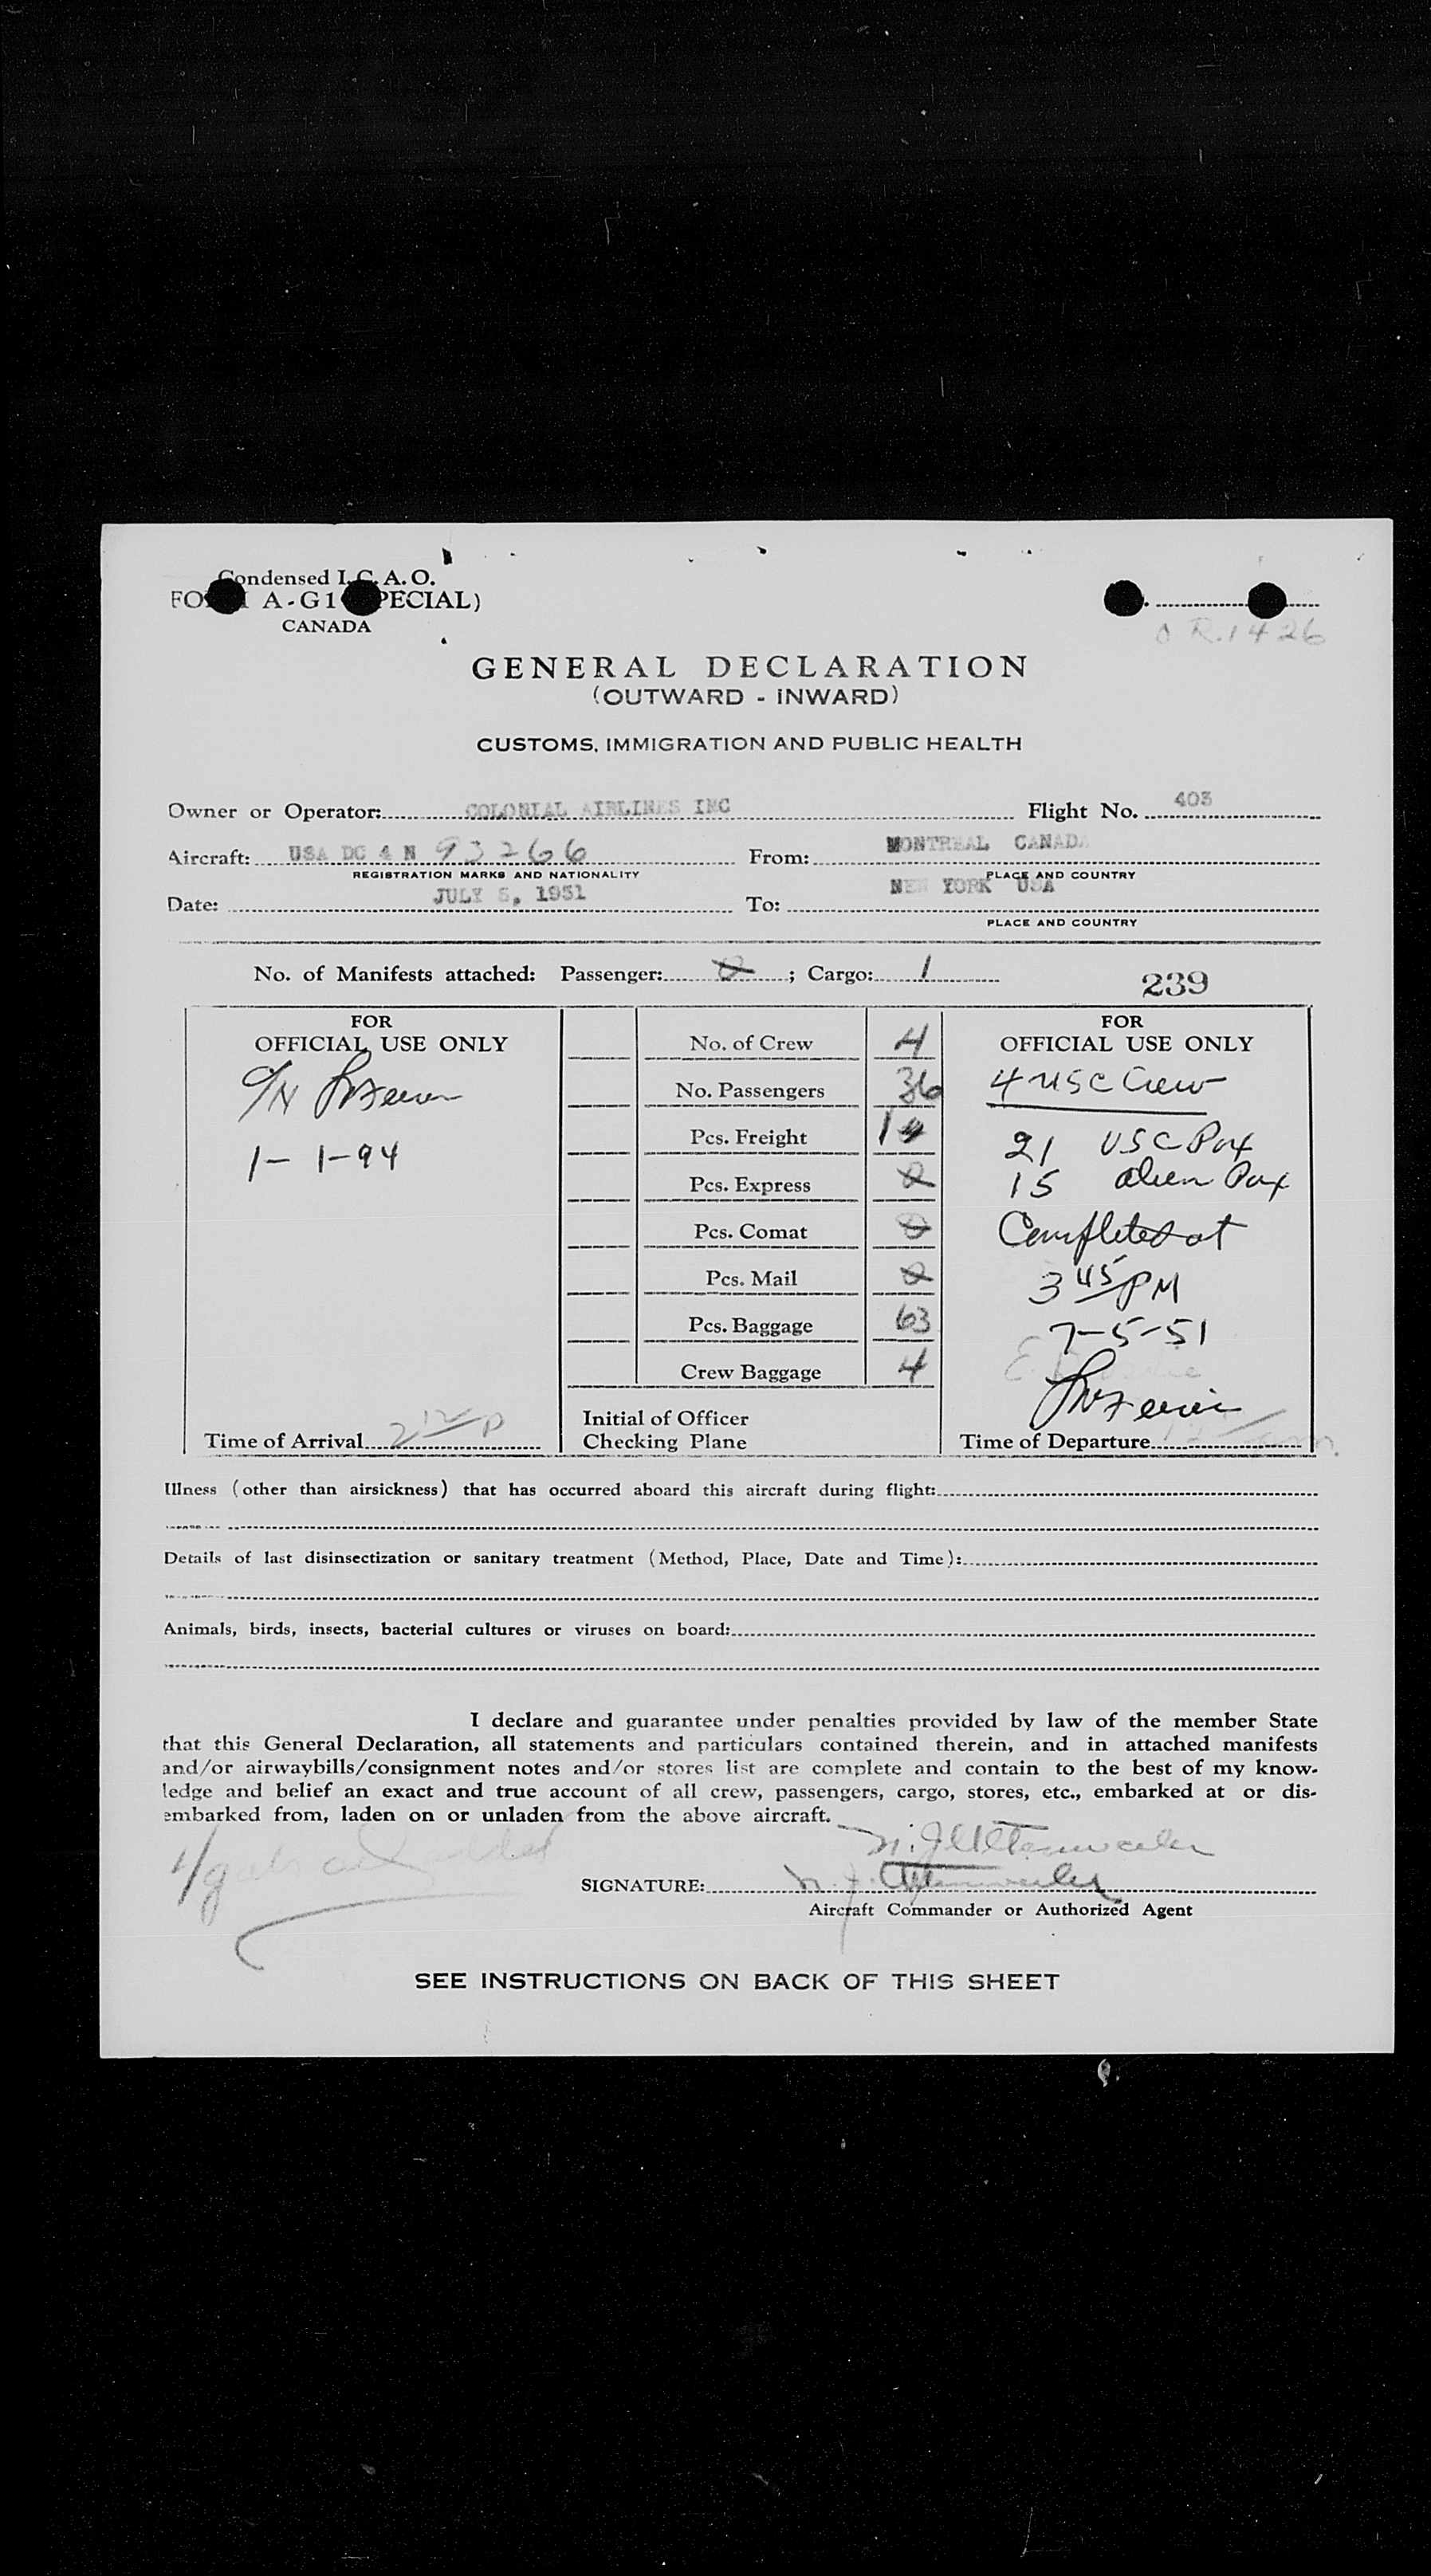 Condensed I.C.A.O.
A-G1
CANADA
O R.1426
GENERAL DECLARATION
(OUTWARD - INWARD)
CUSTOMS, IMMIGRATION AND PUBLIC HEALTH
Owner or Operator: COLONIAL AIRLINES INC Flight No. 403
Aircraft: USA DC 4 N 93266 From: MONTREAL CANADA
REGISTRATION MARKS AND NATIONALITY PLACE AND COUNTRY
Date: JULY 5, 1951 To: NEW YORK USA
PLACE AND COUNTRY
No. of Manifests attached: Passenger: 0; Cargo: 1
239
FOR
OFFICIAL USE ONLY
1-1-94
Time of Arrival 2 12 P
No. of Crew 4
No. Passengers 36
Pcs. Freight 1
Pcs. Express 0
Pcs. Comat 0
Pcs. Mail 0
Pcs. Baggage 63
Crew Baggage 4
Initial of Officer
Checking Plane
FOR
OFFICIAL USE ONLY
4 USC Crew
21 USC Pax
15 alien Pax
Completed at
3 45 PM
7-5-51
Time of Departure
Illness (other than airsickness) that has occurred aboard this aircraft during flight:
Details of last disinsectization or sanitary treatment (Method, Place, Date and Time):
Animals, birds, insects, bacterial cultures or viruses on board:
I declare and guarantee under penalties provided by law of the member State
that this General Declaration, all statements and particulars contained therein, and in attached manifests
and/or airwaybills/consignment notes and/or stores list are complete and contain to the best of my know-
ledge and belief an exact and true account of all crew, passengers, cargo, stores, etc., embarked at or dis-
embarked from, laden on or unladen from the above aircraft.
SIGNATURE:
Aircraft Commander or Authorized Agent
SEE INSTRUCTIONS ON BACK OF THIS SHEET